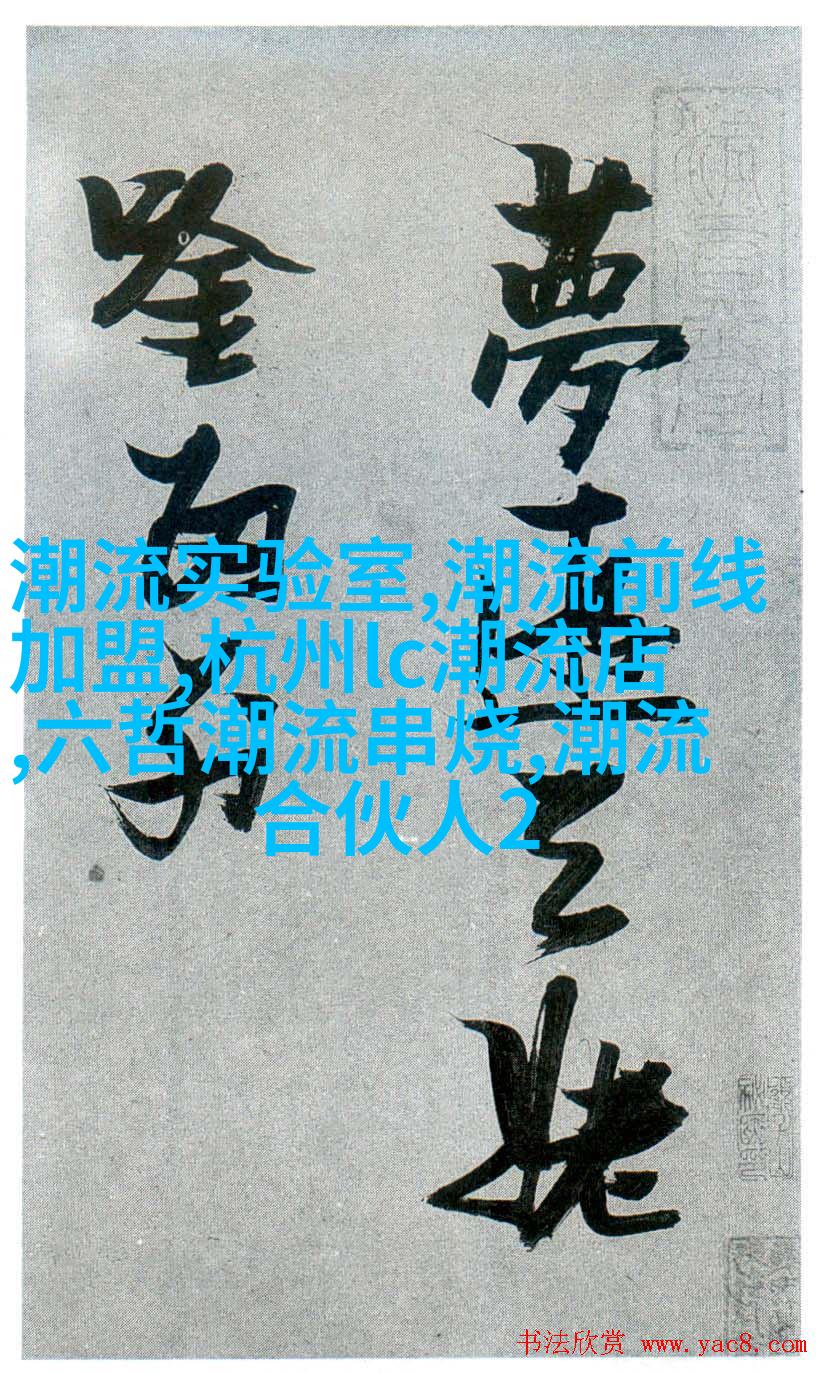 夢天姥
唫留别
潮流实验室,潮流前线
加盟,杭州lc潮流店
,六哲潮流串烧,潮流
合伙人2
书法欣赏 www.yac8.com